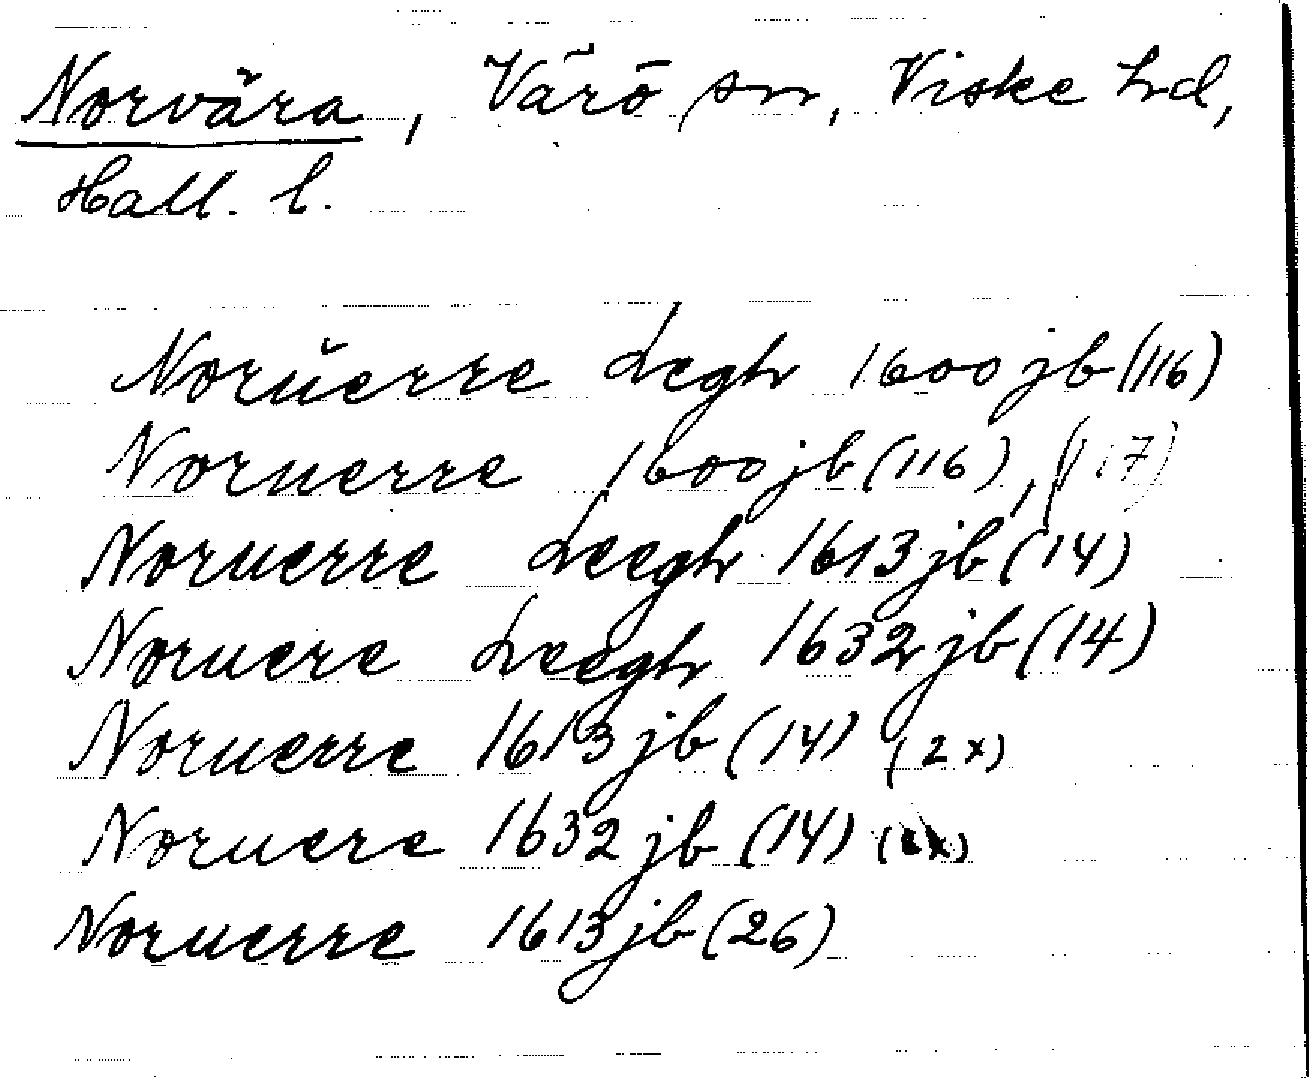 Norvära, Värö sn, Viske hd,
Hall. l.
Norŭerre Legh 1600 jb (116)
Noruerre 1600 jb (116), (117)
Noruerre Leegh 1613 jb (14)
Noruere Leegh 1632 jb (14)
Noruerre 1613 jb (14) (2x)
Noruere 1632 jb (14)
Noruerre 1613 jb (26)